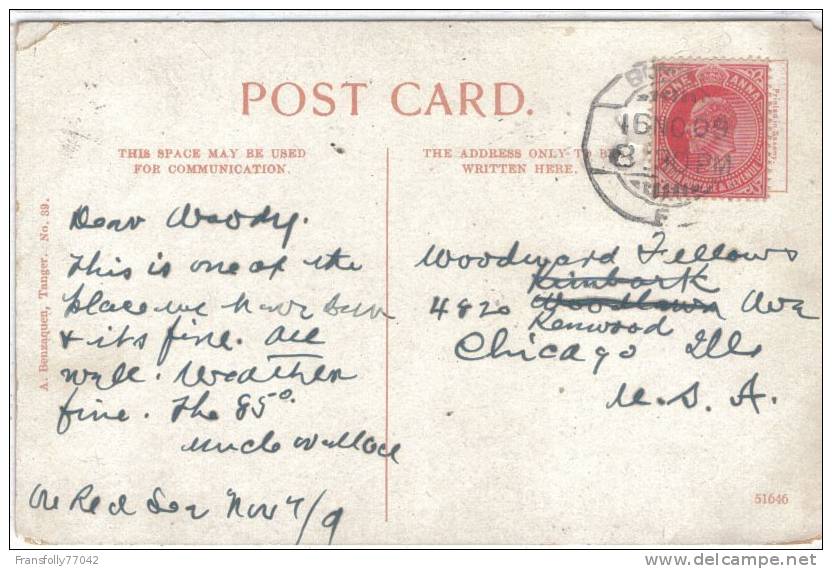 POST CARD.
THIS SPACE MAY BE USED
FOR COMMUNICATION.
THE ADDRESS ONLY TO BE
WRITTEN HERE.
A. Benzaquen, Tanger. No. 39.
Dear Woody.
This is one of the
place we have been
& its fine. All
well. Weather
fine. The 85°.
Uncle Wallace
On Red Sea Nov 7/9
Woodward Fellows
Kimbark
4820 Woodlawn Ave
Kenwood
Chicago Ills
U. S. A.
ONE ANNA
POSTAGE & REVENUE
16 NO 09
8
PM
51646
Fransfolly77042
delcampe.net